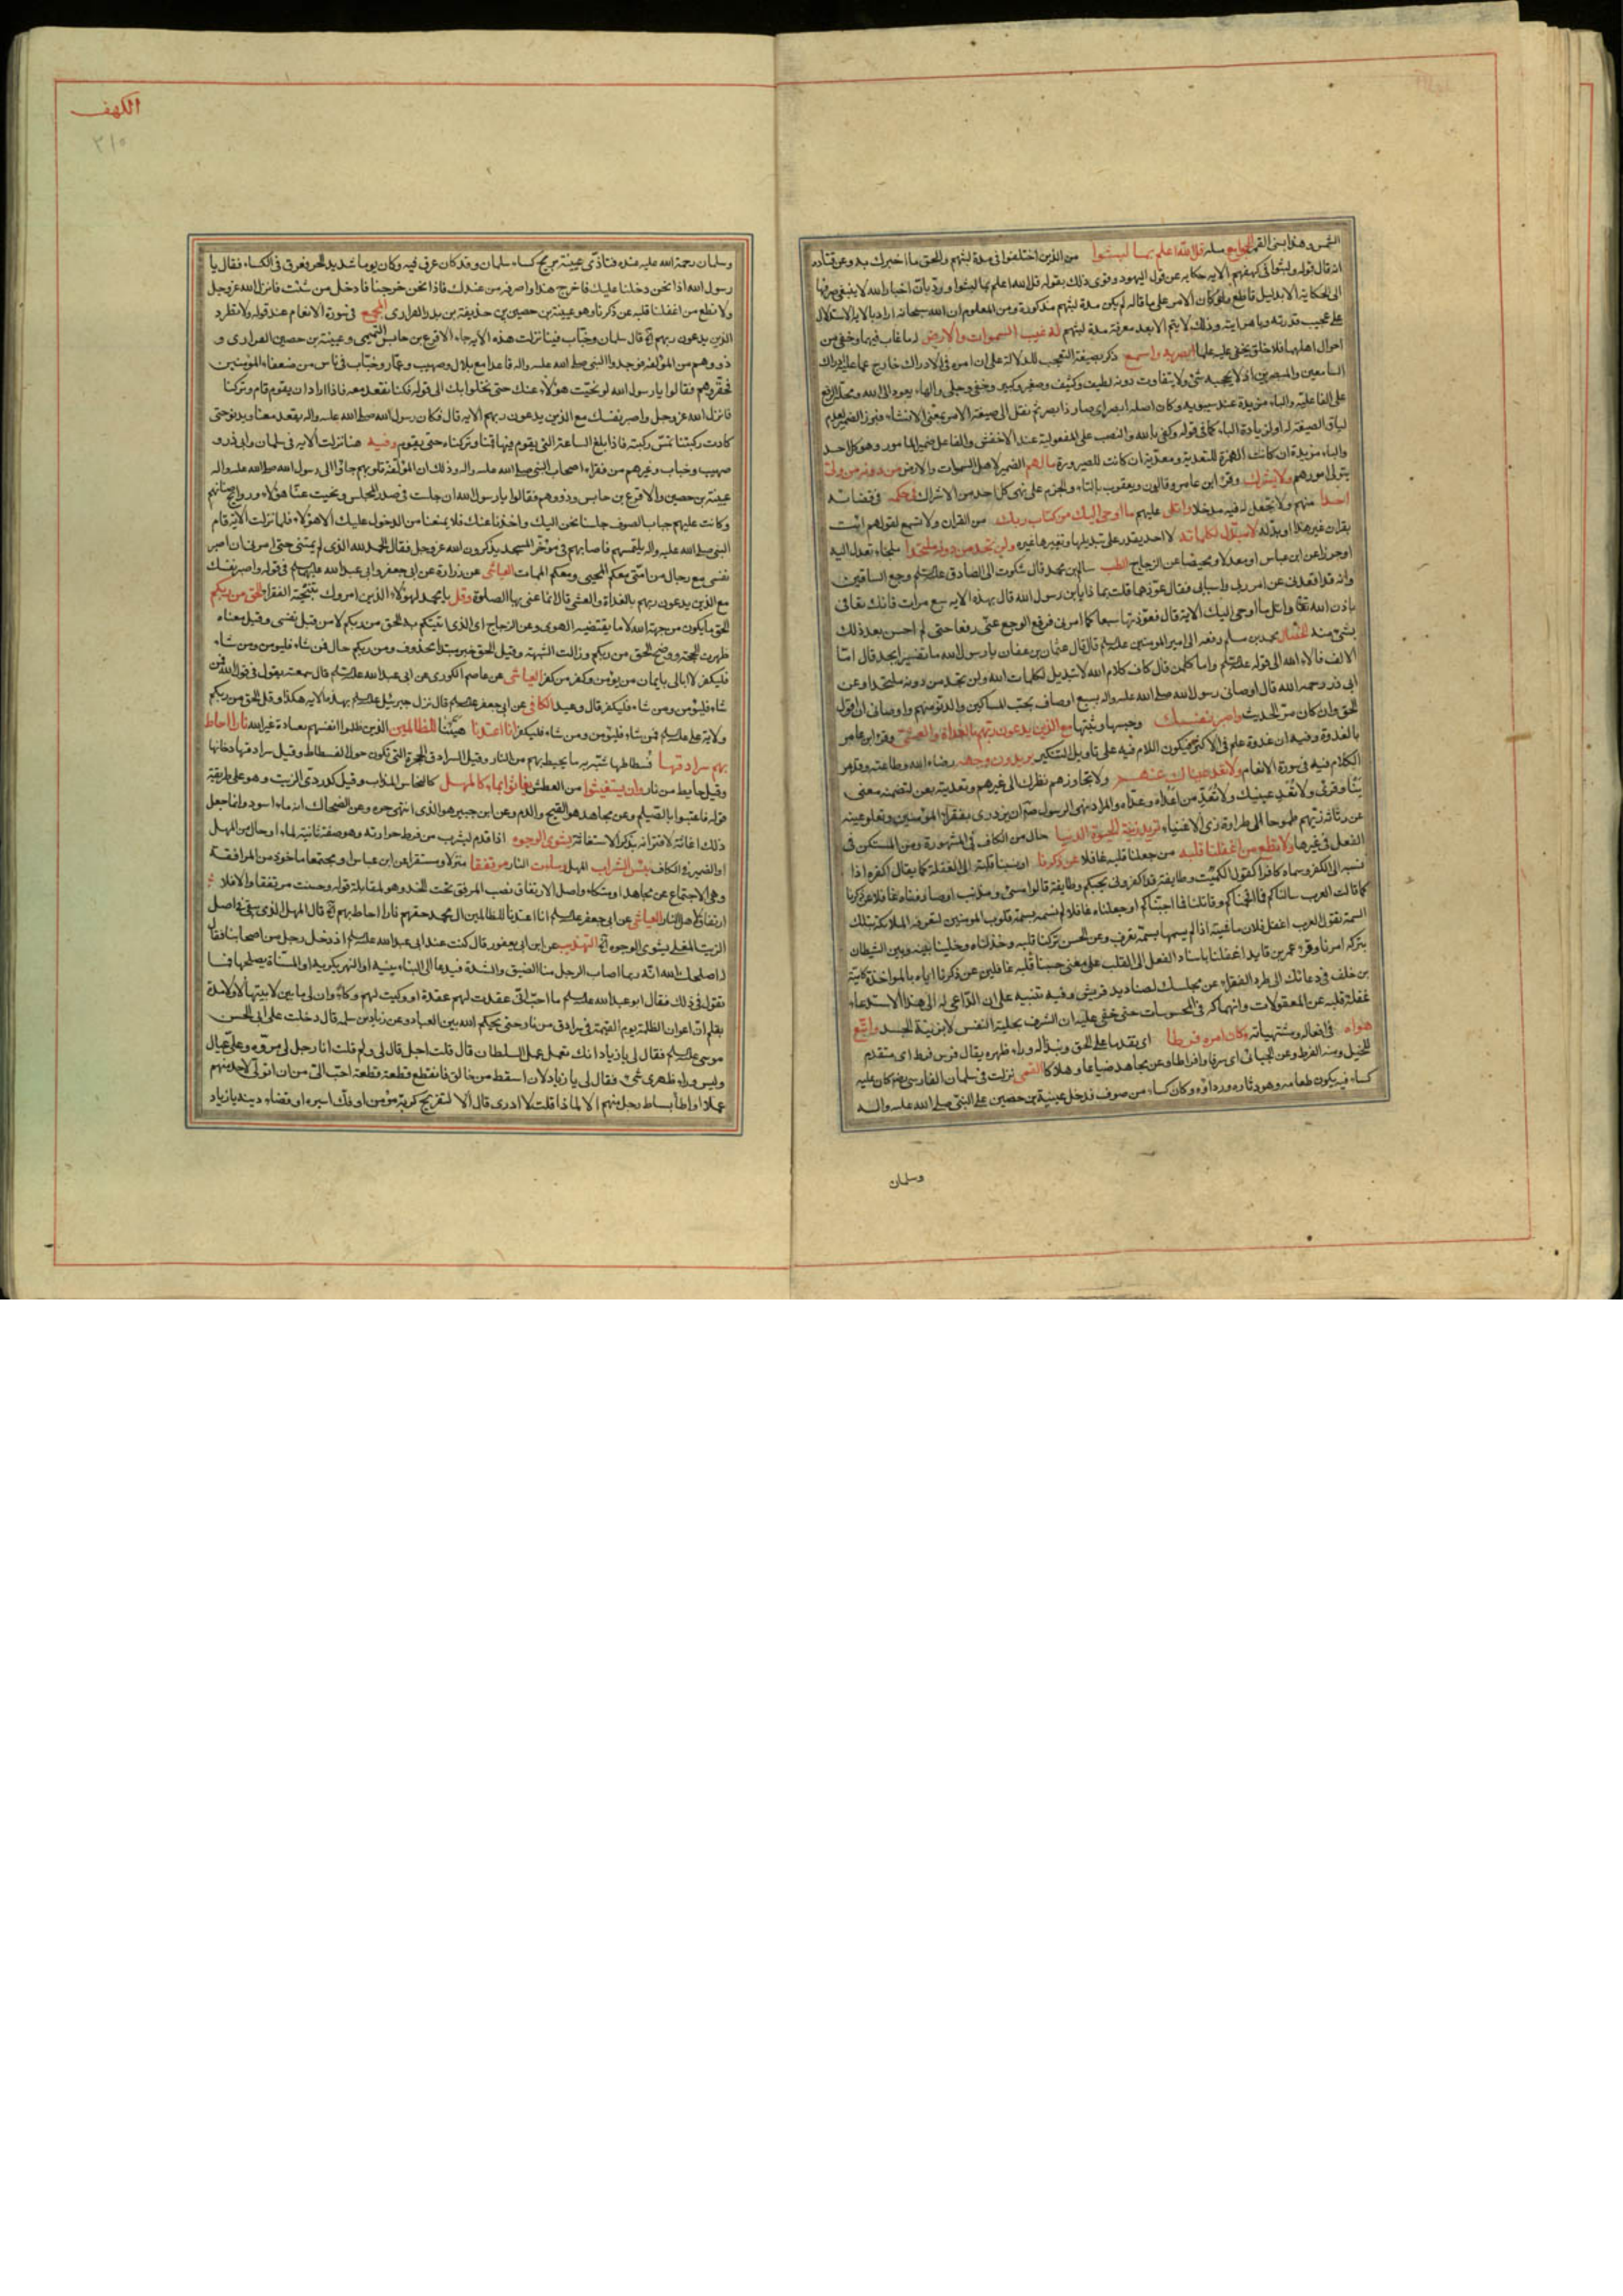 الشمس وهذا بسنى القمر الجامع مثله قل الله اعلم بما لبثوا من الذين اختلفوا فى مدة لبثهم والحق ما اخبرك به وعن قتادة
انه قال قوله ولبثوا فى كهفهم الاية حكاية عن قول اليهود وقوى ذلك بقوله قل الله اعلم بما لبثوا ورد بان اخبار الله لا ينبغى صرفها
الى الحكاية الا بدليل قاطع ولو كان الامر على ما قاله لم يكن مدة لبثهم مذكورة ومن المعلوم ان الله سبحانه اراد بالاية الاستدلال
على عجيب قدرته وباهر ايته وذلك لا يتم الا بعد معرفة مدة لبثهم له غيب السموات والارض له ما غاب فيهما وخفى من
احوال اهلهما فلا خلق يخفى عليه علما ابصر به واسمع ذكر بصيغة التعجب للدلالة على ان امره فى الادراك خارج عما عليه ادراك
السامعين والمبصرين اذ لا يحجبه شئ ولا يتفاوت دونه لطيف وكثيف وصغير وكبير وخفى وجلى والهاء يعود الى الله ومحله الرفع
على الفاعلية والباء مزيدة عند سيبويه وكان اصله ابصر اى صار ذا بصر ثم نقل الى صيغة الامر بمعنى الانشاء فبرز الضمير لعدم
لياق الصيغة له او لزيادة الباء كما فى قوله وكفى بالله والنصب على المفعولية عند الاخفش والفاعل ضمير المامور وهو كل احد
والباء مزيدة ان كانت الهمزة للتعدية ومعدية ان كانت للصيرورة ما لهم الضمير لاهل السموات والارض من دونه من ولى
يتولى امورهم ولا يشرك وقرء ابن عامر وقالون ويعقوب بالتاء والجزم على نهى كل احد من الاشراك فى حكمه فى قضائه
احدا منهم ولا يجعل له فيه مدخلا واتل عليهم ما اوحى اليك من كتاب ربك من القران ولا تسمع لقولهم ائت
بقران غير هذا او بدله لا مبدل لكلماته لا احد يقدر على تبديلها وتغييرها غيره ولن تجد من دونه ملتحدا ملجاء تعدل اليه
او حرزا عن ابن عباس او معدلا ومحيصا عن الزجاج الطب سالم بن محمد قال شكوت الى الصادق عليه السلم وجع الساقين
وانه قد اقعدنى عن امورى واسبابى فقال عوذهما قلت بماذا يا بن رسول الله قال بهذه الاية سبع مرات فانك تعافى
باذن الله تعالى واتل ما اوحى اليك الاية قال فعوذتها سبعا كما امرنى فرفع الوجع عنى رفعا حتى لم احس بعد ذلك
بشئ منه الخصال محمد بن سالم رفعه الى امير المومنين عليه السلم قال قال عثمان بن عفان يا رسول الله ما تفسير ابجد قال اما
الالف فالاء الله الى قوله عليه السلم واما كلمن قال كاف كلام الله لا تبديل لكلمات الله ولن تجد من دونه ملتحدا وعن
ابى ذر رحمه الله قال اوصانى رسول الله صلى الله عليه واله بسبع اوصاف بحب المساكين والدنو منهم واوصانى ان اقول
الحق وان كان مر الحديث واصبر نفسك وحبسها وثبتها مع الذين يدعون ربهم بالغداة والعشى وقرء ابن عامر
بالغدوة وفيه ان غدوة علم فى الاكثر فيكون اللام فيه على تاويل التنكير يريدون وجهه رضاء الله وطاعته وقد مر
الكلام فيه فى سورة الانعام ولا تعد عيناك عنهم ولا تجاوزهم نظرك الى غيرهم وتعديته بعن لتضمينه معنى
نبا وقرئ ولا تعد عينيك ولا تعد من اعداه وعداه والمراد نهى الرسول ص ان يزدرى بفقراء المؤمنين وتعلو عينه
عن رثاثة زيهم طموحا الى طراوة زى الاغنياء تريد زينة الحيوة الدنيا حال من الكاف فى المشهورة ومن المستكن فى
الفعل فى غيرها ولا تطع من اغفلنا قلبه من جعلنا قلبه غافلا عن ذكرنا او نسبنا قلبه الى الغفلة كما يقال اكفره اذا
نسبه الى الكفر وسماه كافرا كقول الكميت وطايفة قد اكفرونى بحبكم وطايفة قالوا مسئ ومذنب او صادفناه غافلا عن ذكرنا
كما قالت العرب سالناكم فما افحمناكم وقاتلناكم فما اجبناكم او جعلناه غافلا لم نسمه بسمة قلوب المومنين لتعرفه الملائكة بتلك
السمة تقول العرب اغفل فلان ماشيته اذا لم يسمها بسمة تعرف وعن الحسن تركنا قلبه وخذلناه وخلينا بينه وبين الشيطان
بتركه امرنا وقرء عمر بن فايد اغفلنا باسناد الفعل الى القلب على معنى حسبنا قلبه غافلين عن ذكرنا اياه بالمواخذة كامية
بن خلف فى دعائك الى طرد الفقراء عن مجلسك لصناديد قريش وفيه تنبيه على ان الداعى له الى هذا الاستدعاء
غفلة قلبه عن المعقولات وانهماكه فى المحسوسات حتى خفى عليه ان الشرف بحلية النفس لا بزينة الجسد واتبع
هواه فى افعاله ومشتهياته وكان امره فرطا اى تقدما على الحق ونبذا له وراء ظهره يقال فرس فرط اى متقدم
للخيل ومنه الفرط وعن الجبائى اى سرفا وافراطا وعن مجاهد ضياعا وهلاكا القمى نزلت فى سلمان الفارسى رض كان عليه
كساء فيه يكون طعامه وهو دثاره ورداؤه وكان كساء من صوف فدخل عيينة بن حصين على النبى صلى الله عليه واله
وسلمان
الكهف
٣١٥
وسلمان رحمة الله عليه عنده فتاذى عيينة بريح كساء سلمان وقد كان عرق فيه وكان يوما شديد الحر فعرق فى الكساء فقال يا
رسول الله اذا نحن دخلنا عليك فاخرج هذا واصرفه من عندك فاذا نحن خرجنا فادخل من شئت فانزل الله عز وجل
ولا تطع من اغفلنا قلبه عن ذكرنا وهو عيينة بن حصين بن حذيفة بن بدر الفزارى المجمع فى سورة الانعام عند قوله ولا تطرد
الذين يدعون ربهم قال سلمان وخباب فينا نزلت هذه الاية جاء الاقرع بن حابس التميمى وعيينة بن حصين الفزارى و
ذووهم من المؤلفة فوجدوا النبى صلى الله عليه واله قاعدا مع بلال وصهيب وعمار وخباب فى ناس من ضعفاء المؤمنين
فحقروهم فقالوا يا رسول الله لو نحيت هؤلاء عنك حتى نخلوا بك الى قوله فكنا نقعد معه فاذا اراد ان يقوم قام وتركنا
فانزل الله عز وجل واصبر نفسك مع الذين يدعون ربهم الاية قال فكان رسول الله صلى الله عليه واله يقعد معنا ويدنو حتى
كادت ركبتنا تمس ركبته فاذا بلغ الساعة التى يقوم فيها قمنا وتركناه حتى يقوم وفيه هنا نزلت الاية فى سلمان وابى ذر و
صهيب وخباب وغيرهم من فقراء اصحاب النبى صلى الله عليه واله وذلك ان المؤلفة قلوبهم جاؤا الى رسول الله صلى الله عليه واله
عيينة بن حصين والاقرع بن حابس وذووهم فقالوا يا رسول الله ان جلست فى صدر المجلس ونحيت عنا هؤلاء وروايح صنانهم
وكانت عليهم جباب الصوف جلسنا نحن اليك واخذنا عنك فلا يمنعنا من الدخول عليك الا هؤلاء فلما نزلت الاية قام
النبى صلى الله عليه واله يلتمسهم فاصابهم فى مؤخر المسجد يذكرون الله عز وجل فقال الحمد لله الذى لم يمتنى حتى امرنى ان اصبر
نفسى مع رجال من امتى معكم المحيى ومعكم الممات العياشى عن زرارة عن ابى جعفر وابى عبد الله عليهما السلم فى قوله واصبر نفسك
مع الذين يدعون ربهم بالغداة والعشى قالا انما عنى بها الصلوة وقل يا محمد لهؤلاء الذين امروك بتنحية الفقراء الحق من ربكم
الحق ما يكون من جهة الله لا ما يقتضيه الهوى وعن الزجاج اى الذى اتيتكم به الحق من ربكم لا من قبل نفسى وقيل معناه
ظهرت الحجة ووضح الحق من ربكم وزالت الشبهة وقيل الحق خبر مبتدا محذوف ومن ربكم حال فمن شاء فليومن ومن شاء
فليكفر لا ابالى بايمان من يؤمن وكفر من كفر العياشى عن عاصم الكوزى عن ابى عبد الله عليه السلم قال سمعته يقول فى قول الله فمن
شاء فليؤمن ومن شاء فليكفر قال وعيد الكافى عن ابى جعفر عليه السلم قال نزل جبرئيل عليه السلم بهذه الاية هكذا وقل الحق من ربكم
ولاية على عليه السلم فمن شاء فليؤمن ومن شاء فليكفر انا اعتدنا هيئنا للظالمين الذين ظلموا انفسهم بعبادة غير الله نارا احاط
بهم سرادقها فسطاطها شبه به ما يحيط بهم من النار وقيل السرادق الحجرة التى تكون حول الفسطاط وقيل سرادقها دخانها
وقيل حايط من نار وان يستغيثوا من العطش يغاثوا بماء كالمهل كالنحاس المذاب وقيل كدردى الزيت وهو على طريقة
قوله فاعتبوا بالصيلم وعن مجاهد هو القيح والدم وعن ابن جبير هو الذى انتهى حره وعن الضحاك انه ماء اسود وانما جعل
ذلك اغاثة لاقترانه بذكر الاستغاثة يشوى الوجوه اذا قدم ليشرب من فرط حرارته وهو صفة ثانية لماء او حال من المهل
او الضمير فى الكاف بئس الشراب المهل وساءت النار مرتفقا منزلا ومستقرا عن ابن عباس او مجتمعا ماخوذ من المرافقة
وهى الاجتماع عن مجاهد او متكاء واصل الارتفاق نصب المرفق تحت الخد وهو لمقابلة قوله وحسنت مرتفقا والا فلا
ارتفاق لاهل النار العياشى عن ابى جعفر عليه السلم انا اعتدنا للظالمين ال محمد حقهم نارا احاط بهم قال المهل الذى يبقى فى اصل
الزيت المغلى يشوى الوجوه التهذيب عن ابن ابى يعفور قال كنت عند ابى عبد الله عليه السلم اذ دخل رجل من اصحابنا فقال
له اصلحك الله انه ربما اصاب الرجل منا الضيق والشدة فيدعا الى البناء يبنيه او النهر يكريه او المسناة يصلحها فما
تقول فى ذلك فقال ابو عبد الله عليه السلم ما احب انى عقدت لهم عقدة او وكيت لهم وكاء وان لى ما بين لابيتها لا ولا مدة
بقلم ان اعوان الظلمة يوم القيمة فى سرادق من نار حتى يحكم الله بين العباد وعن زياد بن سلمة قال دخلت على ابى الحسن
موسى عليه السلم فقال لى يا زياد انك تعمل عمل السلطان قال قلت اجل قال لى ولم قلت انا رجل لى مروة وعلى عيال
وليس وراء ظهرى شئ فقال لى يا زياد لان اسقط من حالق فانقطع قطعة قطعة احب الى من ان اتولى لاحد منهم
عملا او اطأ بساط رجل منهم الا لماذا قلت لا ادرى قال الا لتفريج كربة مؤمن او فك اسره او قضاء دينه يا زياد